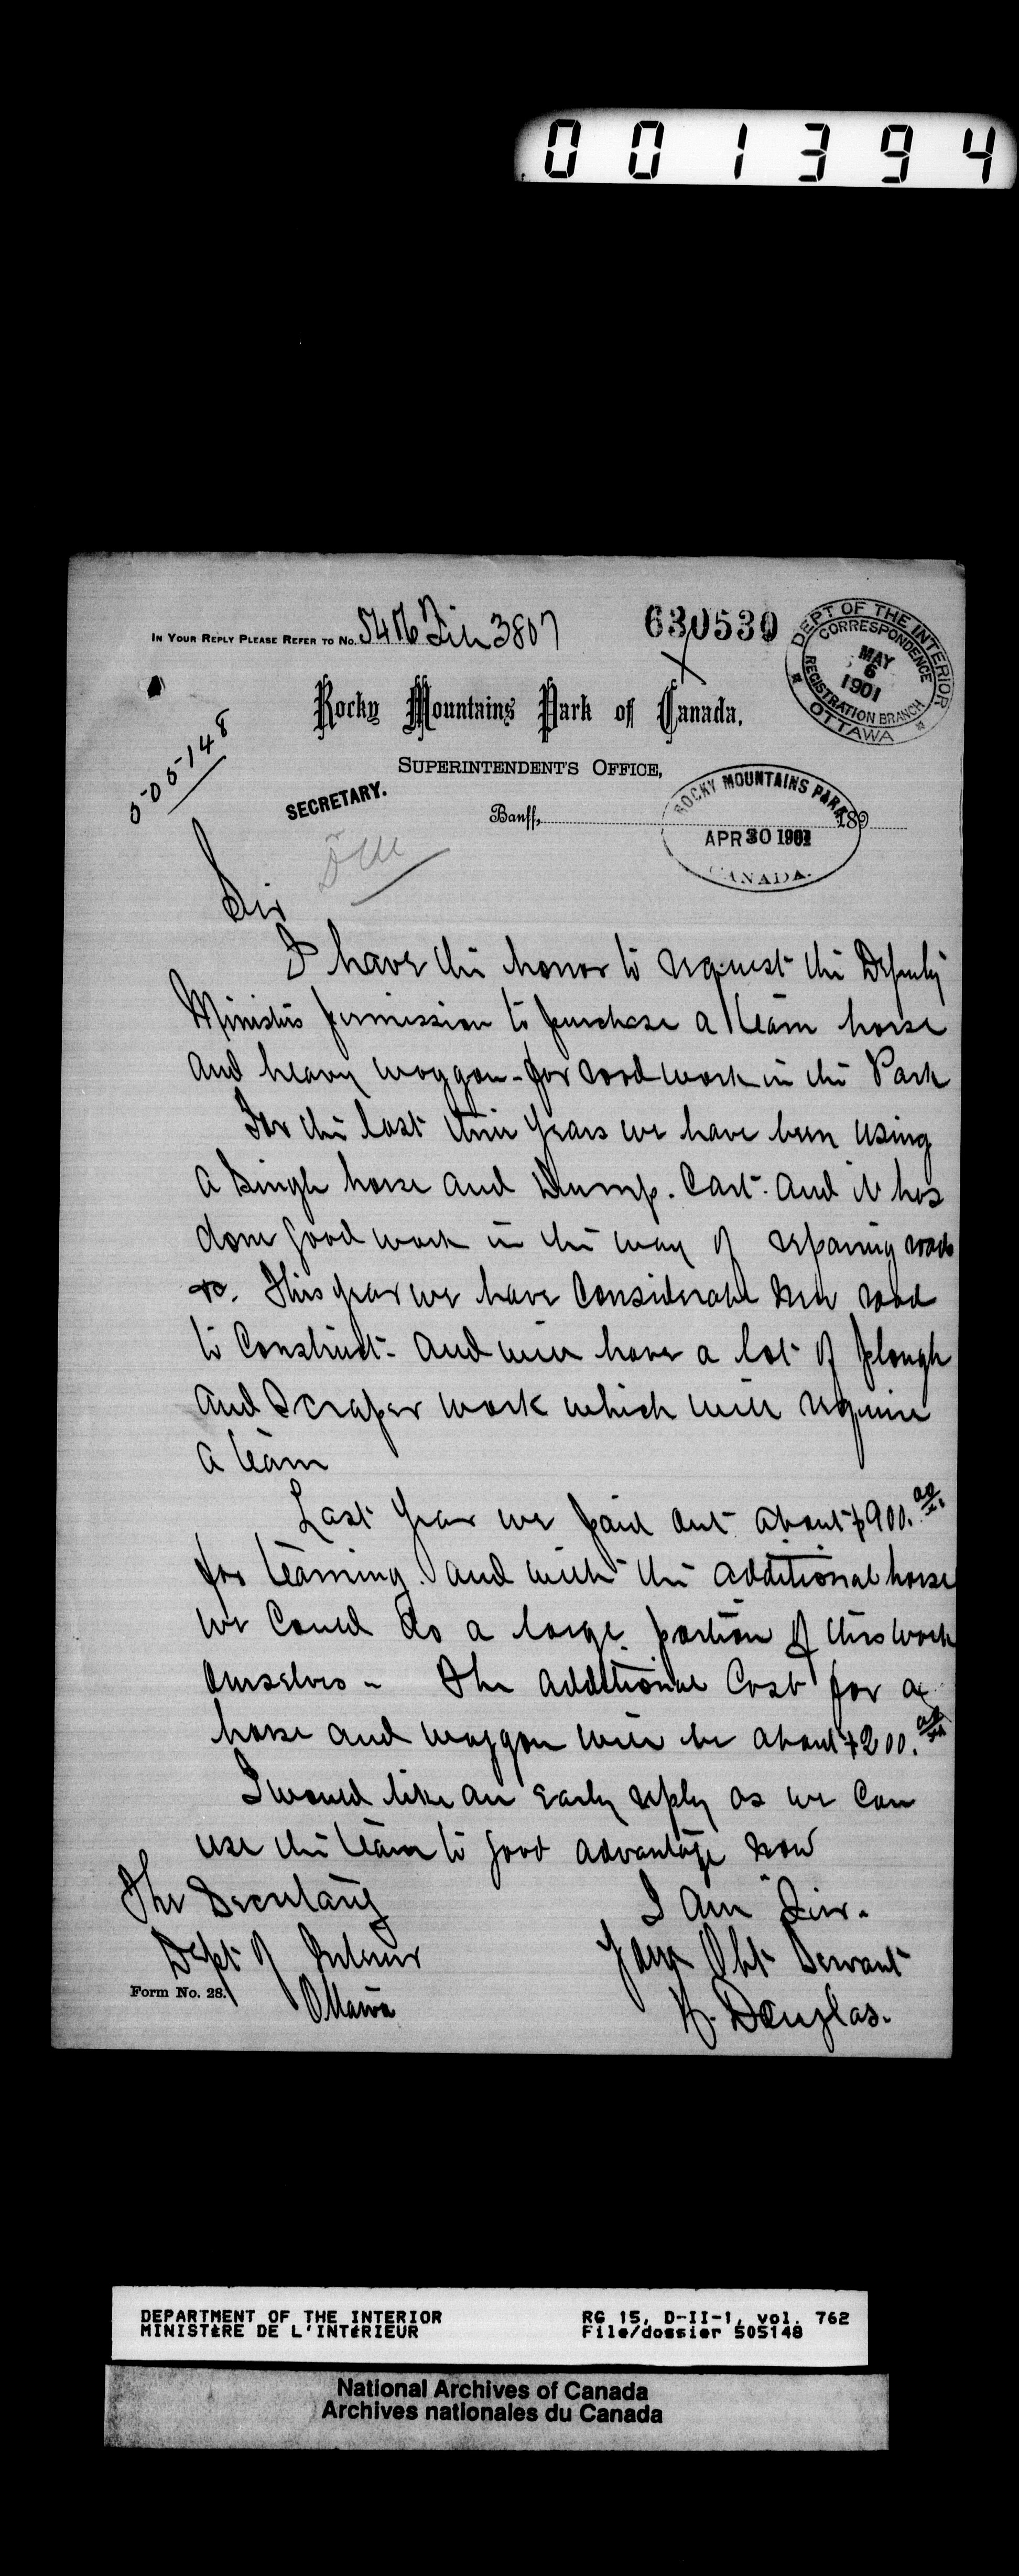 001394
IN YOUR REPLY PLEASE REFER TO No. 3807
630530
DEPT OF THE INTERIOR
CORRESPONDENCE
MAY
6
1901
REGISTRATION BRANCH
OTTAWA
Rocky Mountains Park of Canada,
SUPERINTENDENT'S OFFICE,
505148
SECRETARY.
Banff, 189
ROCKY MOUNTAINS PARK
APR 30 1901
CANADA.
Sir
I have the honor to request the Deputy
Ministers permission to purchase a team horse
and heavy waggon - for road work in the Park
For the last three years we have been using
a single horse and Dump. Cart. and it has
done good work in the way of reparing roads
&c. This year we have Considerable new road
to Construct - and will have a lot of plough
and Scraper work which will require
a team
Last year we paid out about $900.
for teaming. and with the additional horse
we Could do a large portion of this work
ourselves - The additional Cost for a
horse and waggon will be about $200.
I would like an early reply as we Can
use the team to good advantage now
The Secretary
Dept of Interior
Ottawa
I am Sir.
Your Obt Servant
H. Douglas.
Form No. 28.
DEPARTMENT OF THE INTERIOR
MINISTÈRE DE L'INTÉRIEUR
RG 15, D-II-1, vol. 762
File/dossier 505148
National Archives of Canada
Archives nationales du Canada